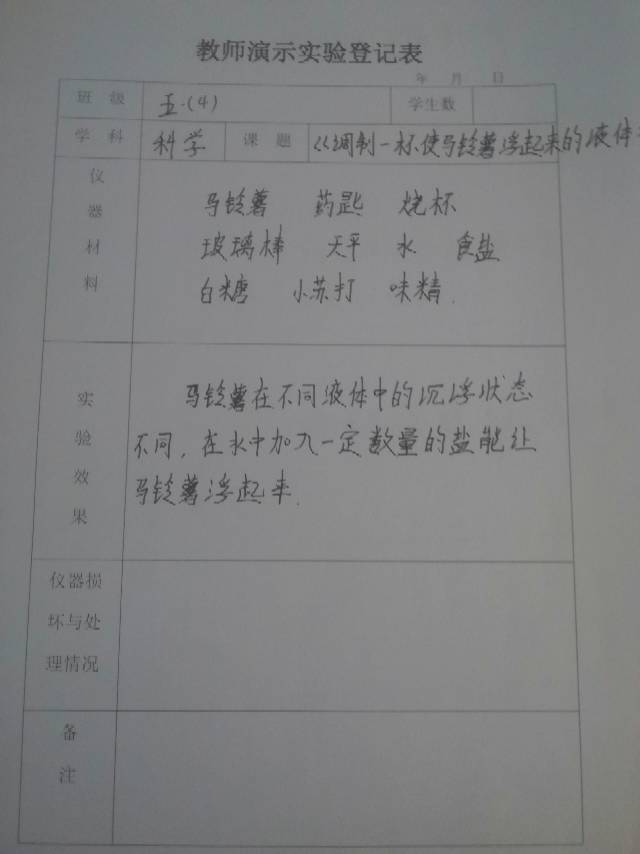 教师演示实验登记表
年 月 日
班 级 五.(4) 学生数
学 科 科学 课 题 《调制一杯使马铃薯浮起来的液体
仪器材料
马铃薯 药匙 烧杯
玻璃棒 天平 水 食盐
白糖 小苏打 味精.
实验效果
马铃薯在不同液体中的沉浮状态
不同，在水中加入一定数量的盐能让
马铃薯浮起来.
仪器损
坏与处
理情况
备
注